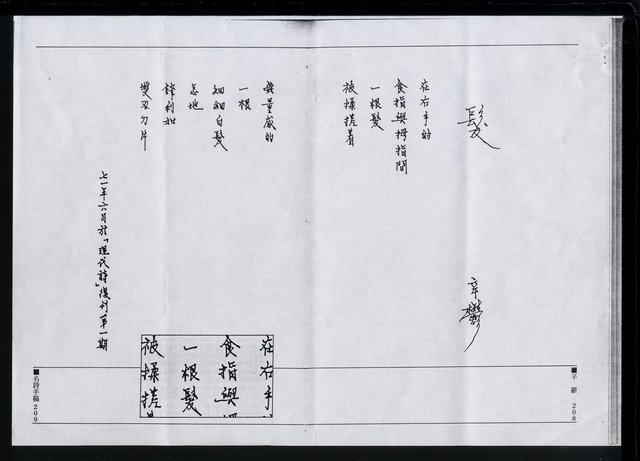 髮
辛鬱
在右手的
食指與拇指間
一根髮
被揉搓着
無量感的
一根
細細白髮
忽地
鋒利如
雙刃刀片
七一年六月於「現代詩」復刊第一期
在右手
食指與拇
一根髮
被揉搓着
■辛鬱 208
■名詩手稿 209